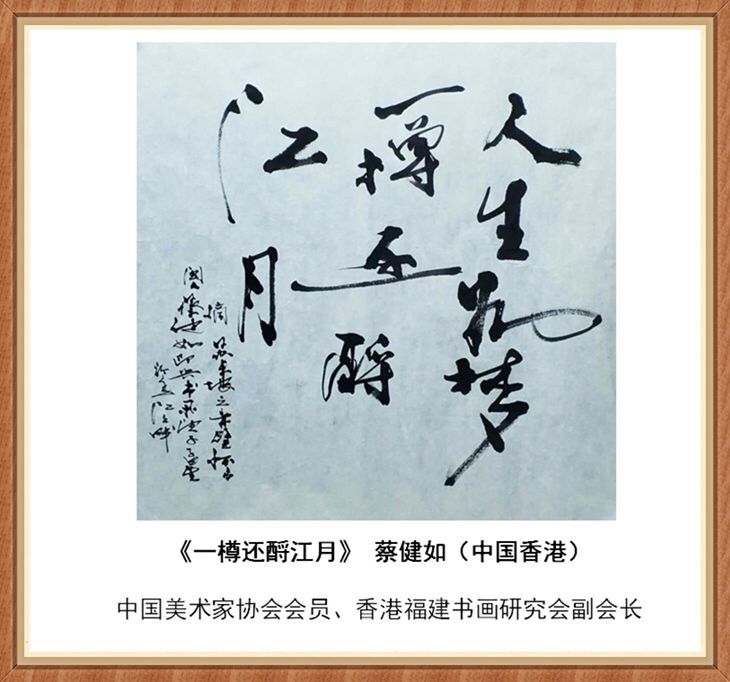 人生如梦
一樽还酹
江月
摘苏东坡之赤壁怀古
《一樽还酹江月》 蔡健如（中国香港）
中国美术家协会会员、香港福建书画研究会副会长